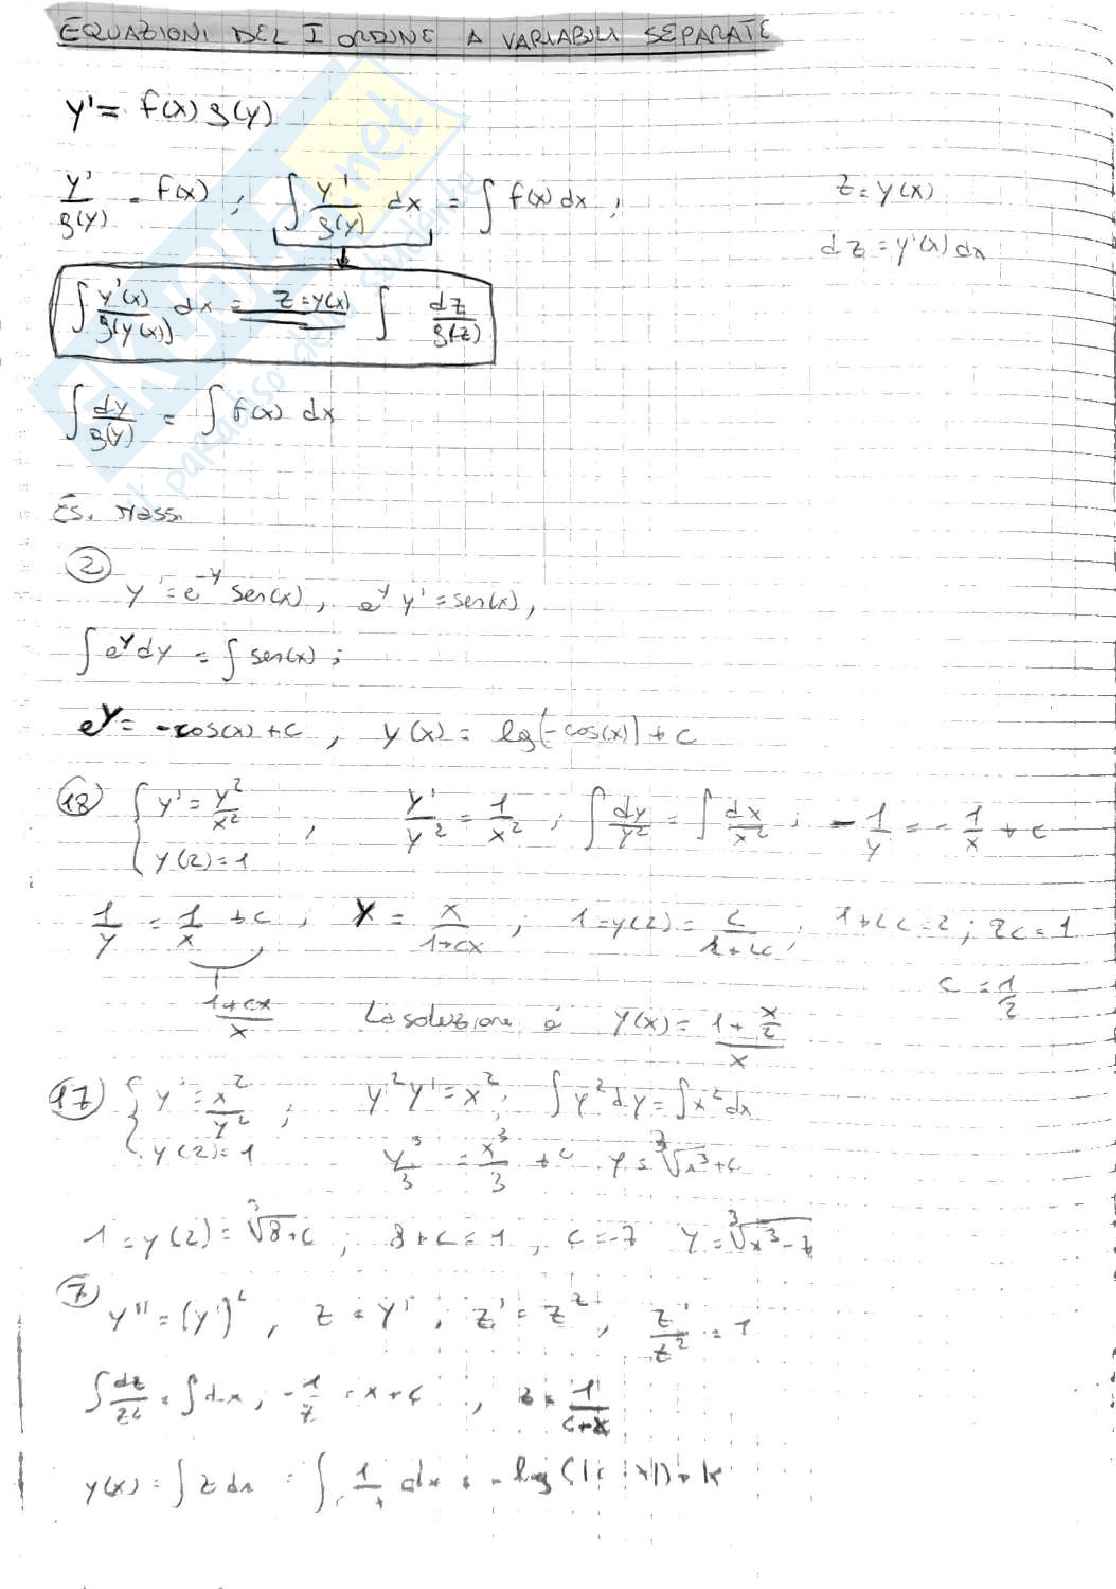 EQUAZIONI DEL I ORDINE A VARIABILI SEPARATE
y' = f(x) g(y)
y'/g(y) = f(x) ; ∫ y'/g(y) dx = ∫ f(x) dx ; z = y(x)
dz = y'(x) dx
∫ y'(x)/g(y(x)) dx = z=y(x) ∫ dz/g(z)
∫ dy/g(y) = ∫ f(x) dx
Es.
②
y' = e^-y sen(x) , e^y y' = sen(x) ,
∫ e^y dy = ∫ sen(x) ;
e^y = -cos(x) + c , y(x) = lg[-cos(x)] + c
⑱ { y' = y²/x² , y'/y² = 1/x² ; ∫ dy/y² = ∫ dx/x² ; -1/y = -1/x + c
y(2) = 1
1/y = 1/x + c , y = x/(1+cx) ; 1 = y(2) = 2/(1+2c) ; 1+2c = 2 ; 2c = 1
c = 1/2
(1+cx)/x La soluzione è y(x) = (1 + x/2)/x
⑰ { y' = x²/y² ; y² y' = x² ; ∫ y² dy = ∫ x² dx
y(2) = 1 y³/3 = x³/3 + c y = ³√x³+c
1 = y(2) = ³√8+c ; 8+c = 1 , c = -7 y = ³√x³-7
⑦
y'' = (y')² , z = y' ; z' = z² , z'/z² = 1
∫ dz/z² = ∫ dx , -1/z = x + c , z = 1/(c+x)
y(x) = ∫ z dx = ∫ 1/ dx = -log(|c x|) + k